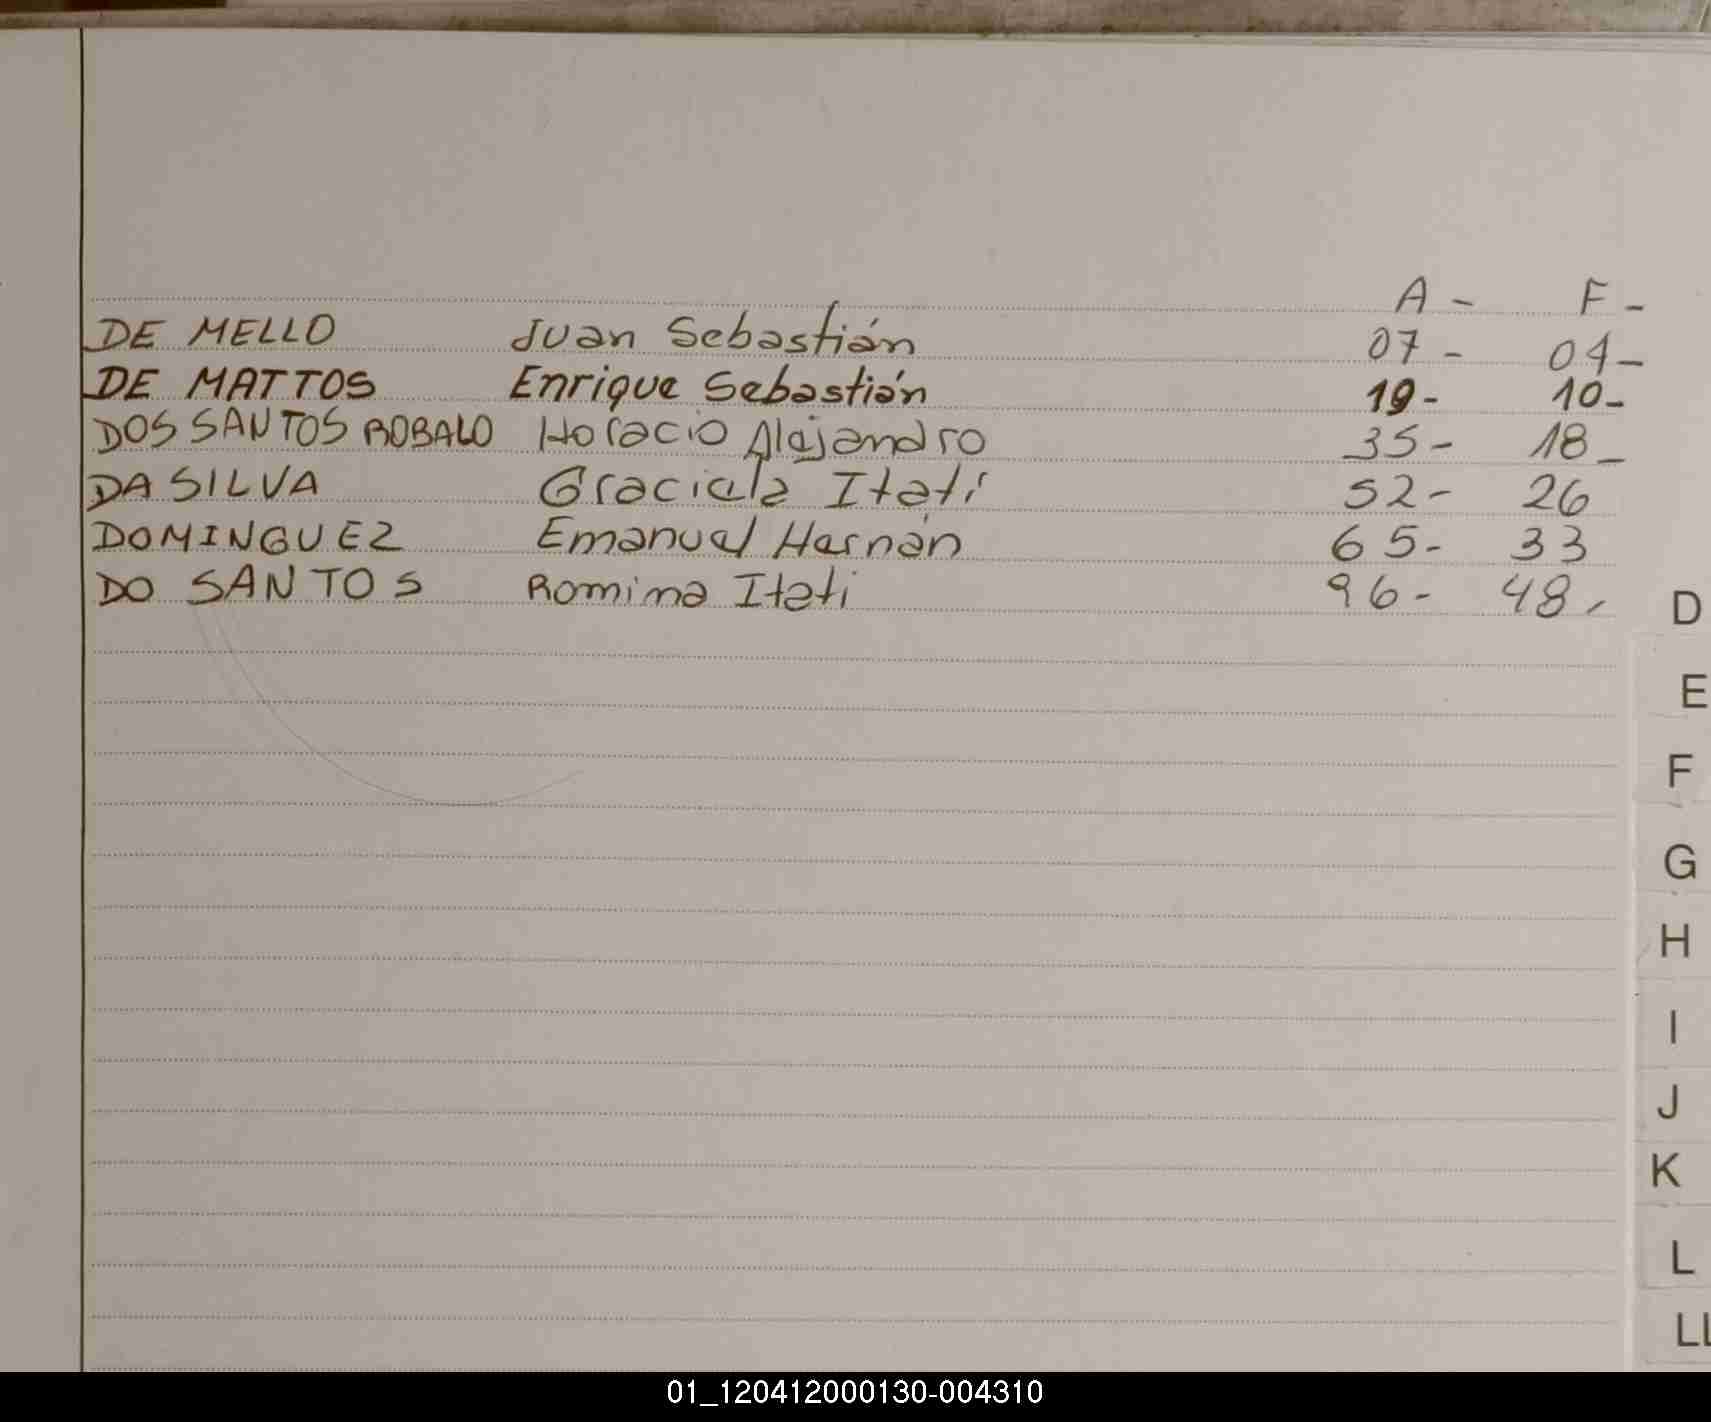 A - F -
DE MELLO Juan Sebastián 07 - 04 -
DE MATTOS Enrique Sebastián 19 - 10 -
DOS SANTOS ROBALO Horacio Alejandro 35 - 18 -
DA SILVA Graciela Itatí 52 - 26
DOMINGUEZ Emanuel Hernán 65 - 33
DO SANTOS Romina Itati 96 - 48 -
D
E
F
G
H
I
J
K
L
LL
01_120412000130-004310